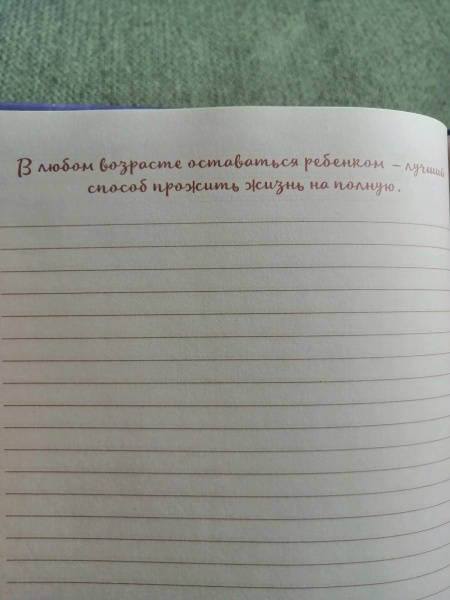 В любом возрасте оставаться ребенком – лучший
способ прожить жизнь на полную.